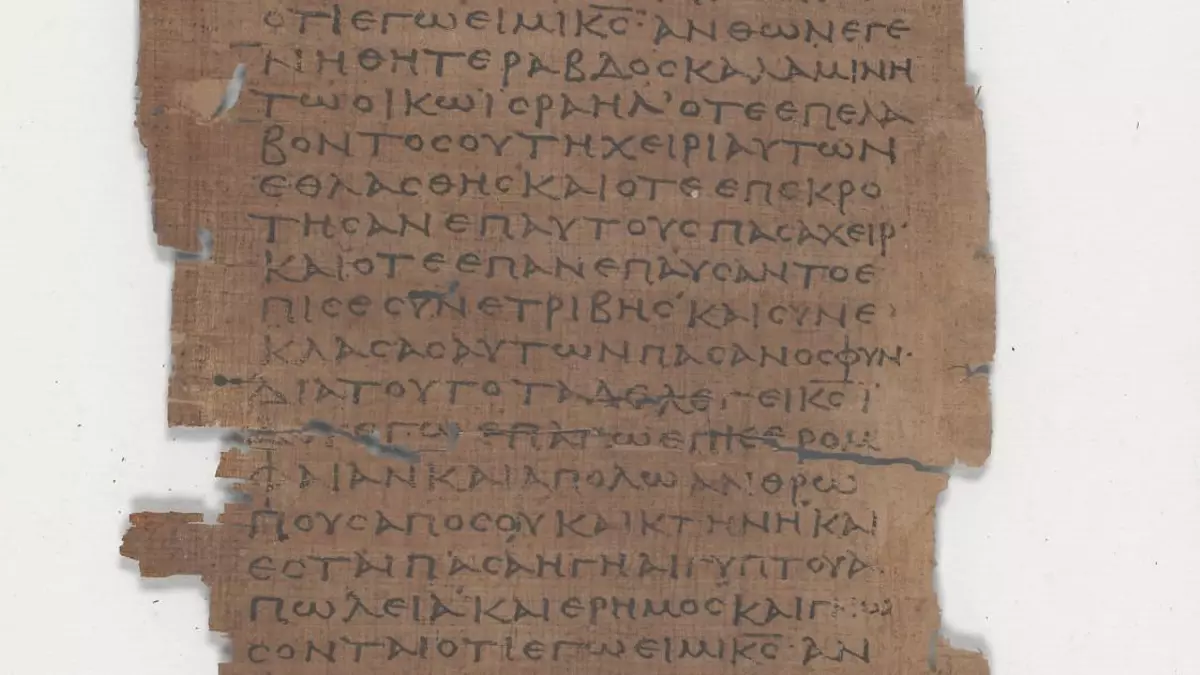 ΟΤΙΕΓΩΕΙΜΙΚ̅Ϲ̅·ΑΝΘΩΝΕΓΕ
ΝΗΘΗΤΕΡΑΒΔΟϹΚΑΛΑΜΙΝΗ
ΤΩΟΙΚΩΙϹΡΑΗΛ’ΟΤΕΕΠΕΛΑ
ΒΟΝΤΟϹΟΥΤΗΧΕΙΡΙΑΥΤΩΝ
ΕΘΛΑϹΘΗϹΚΑΙΟΤΕΕΠΕΚΡΟ
ΤΗϹΑΝΕΠΑΥΤΟΥϹΠΑϹΑΧΕΙΡ·
ΚΑΙΟΤΕΕΠΑΝΕΠΑΥϹΑΝΤΟΕ
ΠΙϹΕϹΥΝΕΤΡΙΒΗϹ’ΚΑΙϹΥΝΕ
ΚΛΑϹΑϹΑΥΤΩΝΠΑϹΑΝΟϹΦΥΝ·
ΔΙΑΤΟΥΤΟΤΑΔΕΛΕΓΕΙΚ̅Ϲ̅Ϊ
ΕΓΩΕΠΑΓΩΕΠΙϹΕΡΟΜ
ΦΑΙΑΝΚΑΙΑΠΟΛΩΑΝΘΡΩ
ΠΟΥϹΑΠΟϹΟΥΚΑΙΚΤΗΝΗΚΑΙ
ΕϹΤΑΙΠΑϹΑΗΓΗΑΙΓΥΠΤΟΥΑ
ΠΩΛΕΙΑ’ΚΑΙΕΡΗΜΟϹΚΑΙΓΝΩ
ϹΟΝΤΑΙΟΤΙΕΓΩΕΙΜΙΚ̅Ϲ̅·ΑΝ